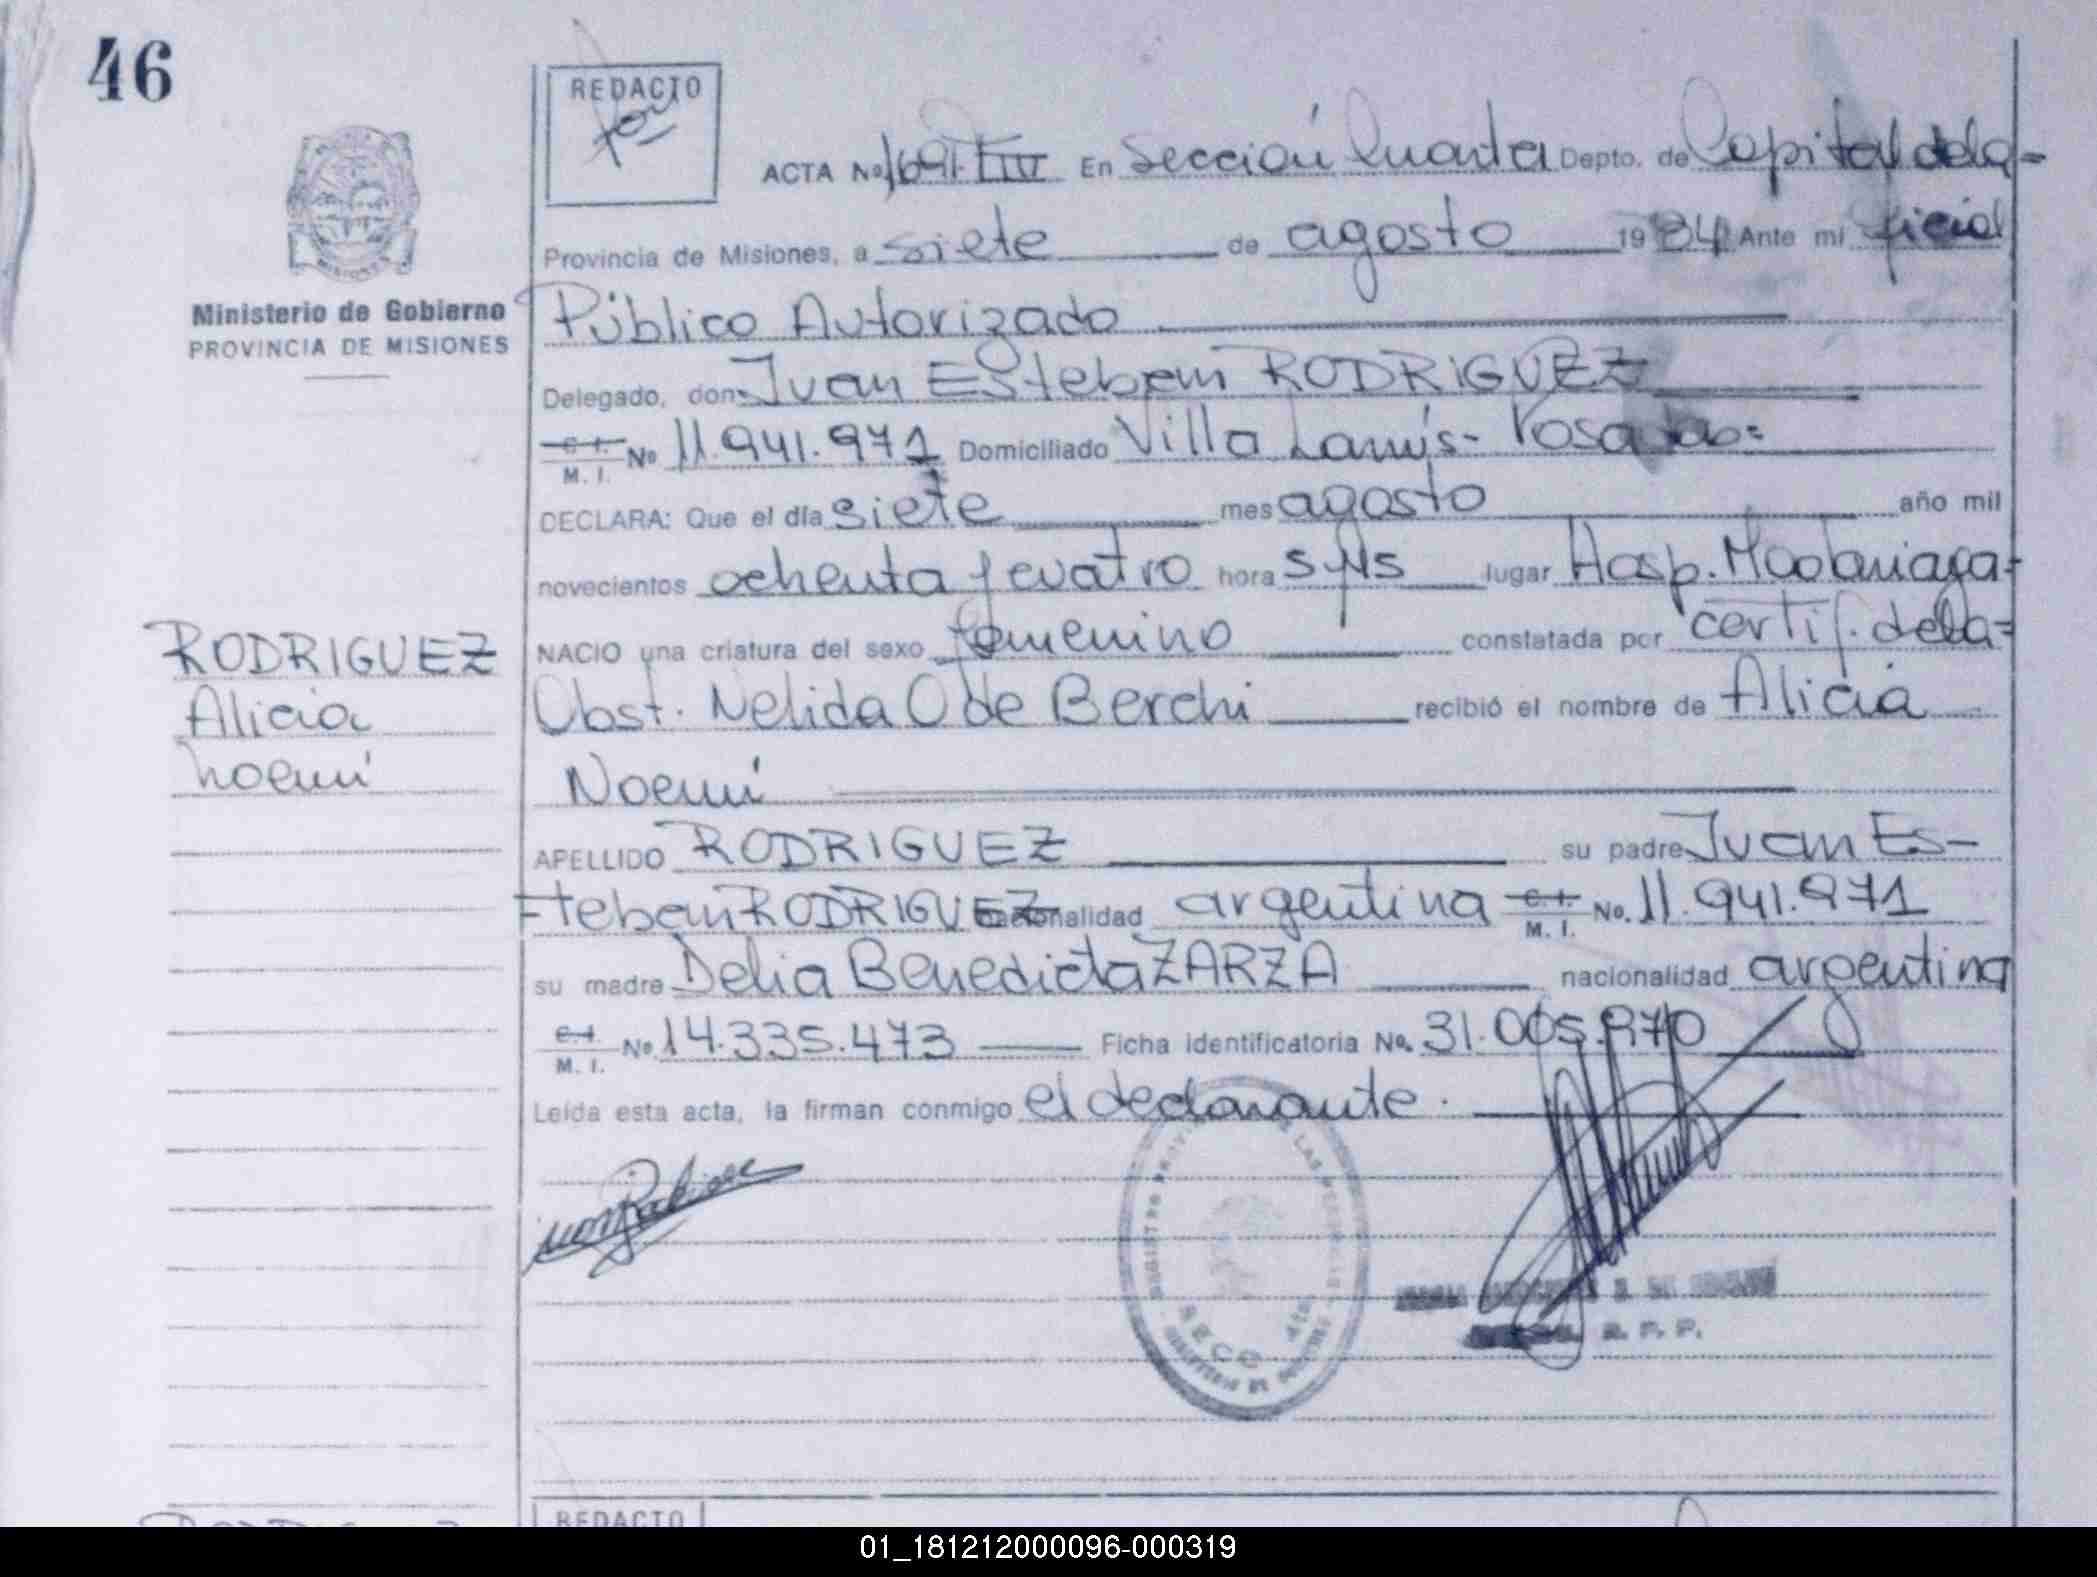 46
REDACTO
ACTA Nº 1691-TIII En Sección Cuarta Depto. de Capital dela=
Provincia de Misiones, a siete de agosto 1984 Ante mí ficial
Público Autorizado
Ministerio de Gobierno
PROVINCIA DE MISIONES
Delegado, don: Juan Esteban RODRIGUEZ
C. I. M. I. Nº 11.941.971 Domiciliado Villa Lanús- Posadas=
DECLARA: Que el día siete mes agosto año mil
novecientos ochenta y cuatro hora 5,15 lugar Hosp. Madariaga-
NACIO una criatura del sexo femenino constatada por certif. dela=
Obst. Nelida O de Berchi recibió el nombre de Alicia
Noemí
RODRIGUEZ
Alicia
Noemí
APELLIDO RODRIGUEZ su padre Juan Es-
teban RODRIGUEZ nacionalidad argentina C. I. M. I. No. 11.941.971
su madre Delia Benedicta ZARZA nacionalidad argentina
C. I. M. I. Nº 14.335.473 Ficha identificatoria No. 31.005.970
Leída esta acta, la firman conmigo el declarante.
SECC 4ta.
R. P. P.
REDACTO
01_181212000096-000319